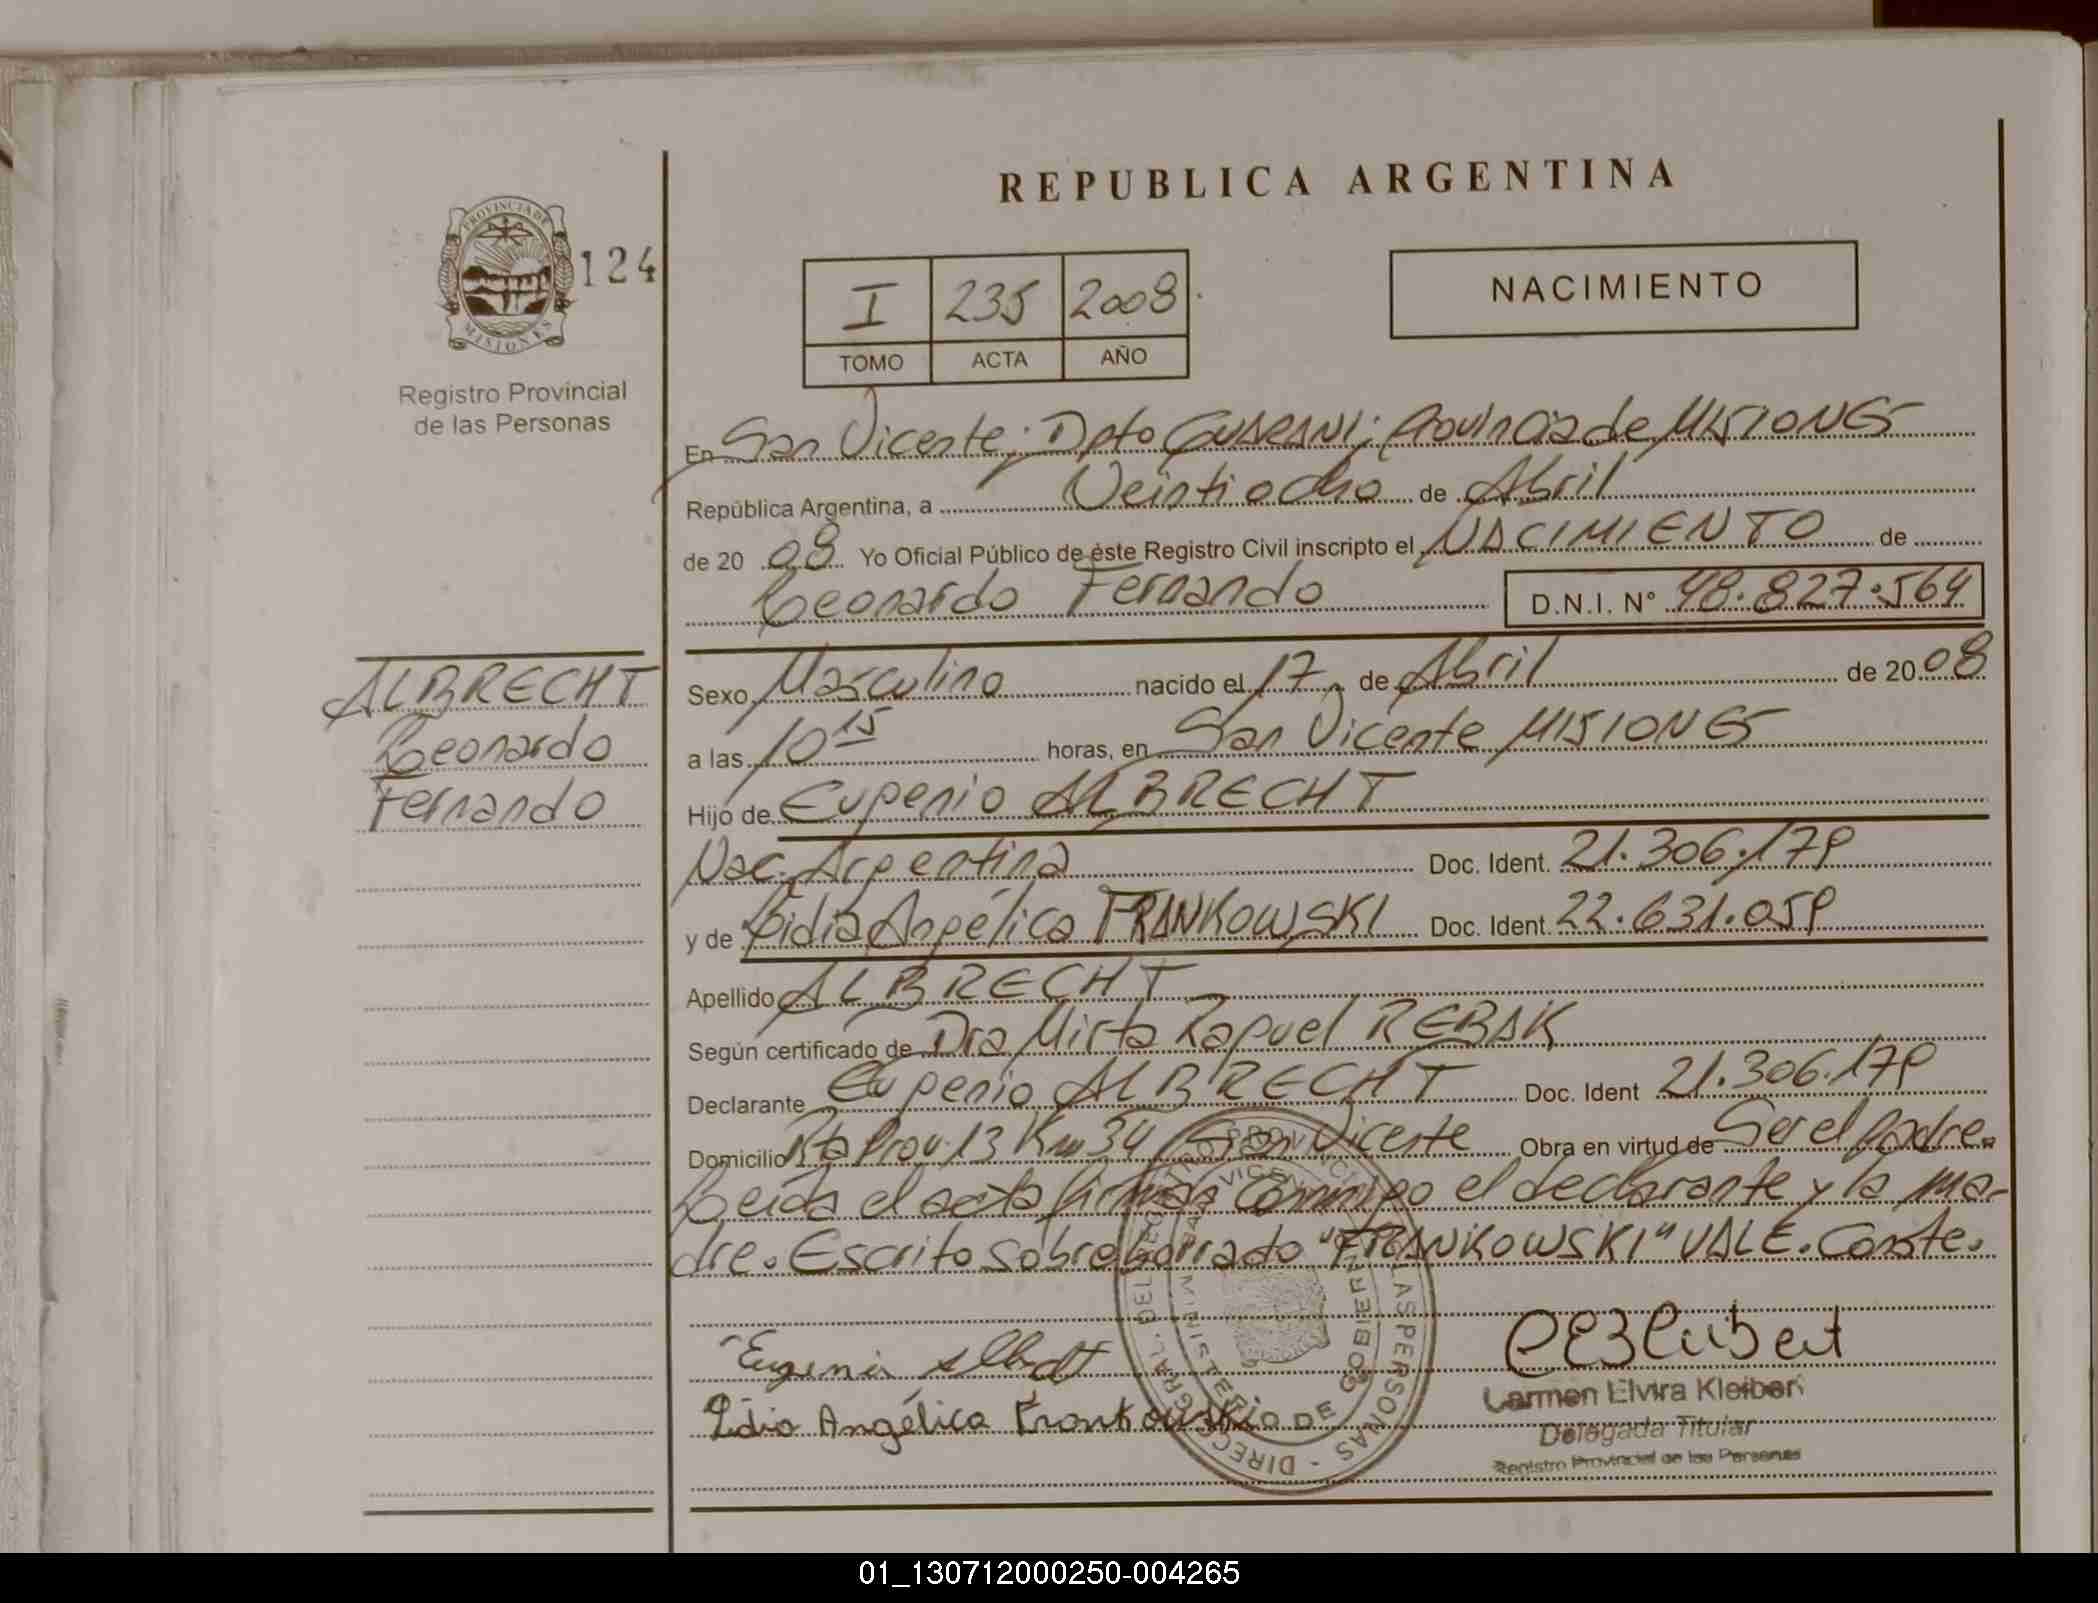 PROVINCIA DE
MISIONES
124
Registro Provincial
de las Personas
REPUBLICA ARGENTINA
I 235 2008
TOMO ACTA AÑO
NACIMIENTO
En San Vicente; Dpto GUARANI; Provincia de MISIONES
República Argentina, a Veintiocho de Abril
de 20 08 Yo Oficial Público de éste Registro Civil inscripto el NACIMIENTO de
Leonardo Fernando D.N.I. N° 48.827.564
ALBRECHT
Leonardo
Fernando
Sexo Masculino nacido el 17 de Abril de 20 08
a las 10 15 horas, en San Vicente MISIONES
Hijo de Eugenio ALBRECHT
Nac. Argentina Doc. Ident. 21.306.179
y de Lidia Angélica FRANKOWSKI Doc. Ident. 22.631.059
Apellido ALBRECHT
Según certificado de Dra Mirta Raquel REBAK
Declarante Eugenio ALBRECHT Doc. Ident 21.306.179
Domicilio Rta Prov. 13 Km 34 San Vicente Obra en virtud de Ser el padre.
Leída el acta firman conmigo el declarante y la ma-
dre. Escrito sobre borrado "FRANKOWSKI" VALE. Conste.
Eugenio Albrecht
Lidia Angélica Frankowski
Carmen Elvira Kleibert
Delegada Titular
Registro Provincial de las Personas
01_130712000250-004265